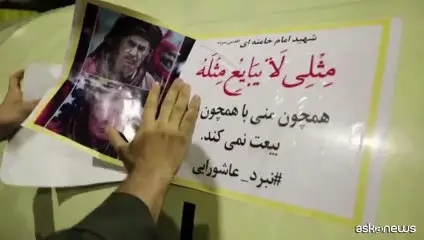 شهید امام خامنه ای
مِثْلِي لَا يُبَايِعُ مِثْلَهُ
همچون منی با همچون
بیعت نمی کند.
#نبرد_عاشورایی
askanews